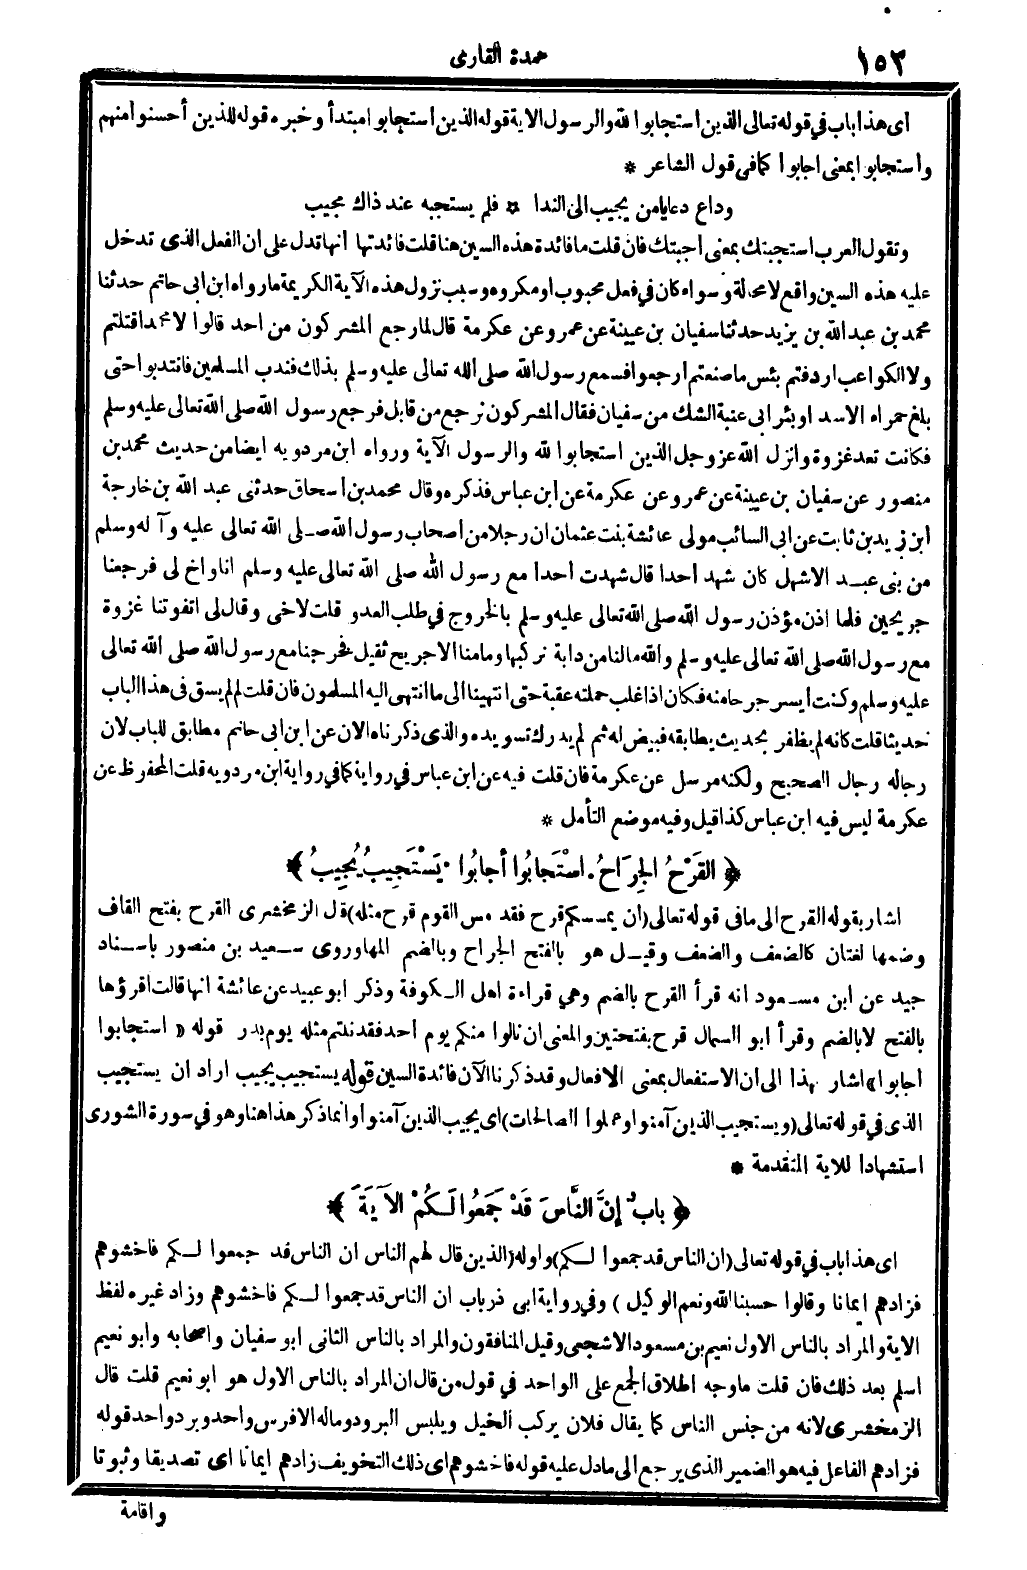 ١٥٢
عمدة القارى
اى هذا باب في قوله تعالى الذين استجابوا لله والرسول الاية قوله الذين استجابوا مبتدأ وخبره قوله للذين أحسنوا منهم
واستجابوا بمعنى اجابوا كما فى قول الشاعر *
وداع دعا يا من يجيب الى الندا * فلم يستجبه عند ذاك مجيب
وتقول العرب استجبتك بمعنى اجبتك فان قلت ما فائدة هذه السين هنا قلت فائدتها انها تدل على ان الفعل الذى تدخل
عليه هذه السين واقع لا محالة وسواء كان في فعل محبوب او مكروه وسبب نزول هذه الآية الكريمة ما رواه ابن ابى حاتم حدثنا
محمد بن عبد الله بن يزيد حدثنا سفيان بن عيينة عن عمرو عن عكرمة قال لما رجع المشركون من احد قالوا لا محمدا قتلتم
ولا الكواعب اردفتم بئس ما صنعتم ارجعوا فسمع رسول الله صلى الله تعالى عليه وسلم بذلك فندب المسلمين فانتدبوا حتى
بلغ حمراء الاسد او بئر ابى عنبة الشك من سفيان فقال المشركون نرجع من قابل فرجع رسول الله صلى الله تعالى عليه وسلم
فكانت تعد غزوة وانزل الله عز وجل الذين استجابوا لله والرسول الآية ورواه ابن مردويه ايضا من حديث محمد بن
منصور عن سفيان بن عيينة عن عمرو عن عكرمة عن ابن عباس فذكره وقال محمد بن اسحاق حدثنى عبد الله بن خارجة
ابن زيد بن ثابت عن ابى السائب مولى عائشة بنت عثمان ان رجلا من اصحاب رسول الله صلى الله تعالى عليه وآله وسلم
من بنى عبد الاشهل كان شهد احدا قال شهدت احدا مع رسول الله صلى الله تعالى عليه وسلم انا واخ لى فرجعنا
جريحين فلما اذن مؤذن رسول الله صلى الله تعالى عليه وسلم بالخروج في طلب العدو قلت لاخى وقال لى اتفوتنا غزوة
مع رسول الله صلى الله تعالى عليه وسلم والله مالنا من دابة نركبها وما منا الا جريح ثقيل فخرجنا مع رسول الله صلى الله تعالى
عليه وسلم وكنت أيسر جرحا منه فكان اذا غلب حملته عقبة حتى انتهينا الى ما انتهى اليه المسلمون فان قلت لم لم يسق فى هذا الباب
حديثا قلت كانه لم يظفر بحديث يطابقه فبيض له ثم لم يدرك تسويده والذى ذكرناه الان عن ابن ابى حاتم مطابق للباب لان
رجاله رجال الصحيح ولكنه مرسل عن عكرمة فان قلت فيه عن ابن عباس في رواية كما في رواية ابن مردويه قلت المحفوظ عن
عكرمة ليس فيه ابن عباس كذا قيل وفيه موضع التأمل *
﴿ القَرْحُ الجِرَاحُ . اسْتَجابُوا أجابُوا . يَسْتَجِيبُ يُجِيبُ ﴾
اشار بقوله القرح الى ما فى قوله تعالى (ان يمسسكم قرح فقد مس القوم قرح مثله) قال الزمخشرى القرح بفتح القاف
وضمها لغتان كالضعف والضعف وقيل هو بالفتح الجراح وبالضم المها وروى سعيد بن منصور باسناد
جيد عن ابن مسعود انه قرأ القرح بالضم وهي قراءة اهل الكوفة وذكر ابو عبيد عن عائشة انها قالت اقرؤها
بالفتح لا بالضم وقرأ ابو السمال قرح بفتحتين والمعنى ان نالوا منكم يوم احد فقد نلتم مثله يوم بدر قوله « استجابوا
اجابوا » اشار بهذا الى ان الاستفعال بمعنى الافعال وقد ذكرنا الآن فائدة السين قوله يستجيب يجيب اراد ان يستجيب
الذى في قوله تعالى (ويستجيب الذين آمنوا وعملوا الصالحات) اى يجيب الذين آمنوا وانما ذكر هذا هنا وهو في سورة الشورى
استشهادا للاية المتقدمة *
﴿ بابٌ إنَّ النَّاسَ قَدْ جَمَعُوا لَكُمْ الآيَةَ ﴾
اى هذا باب في قوله تعالى (ان الناس قد جمعوا لكم) واوله (الذين قال لهم الناس ان الناس قد جمعوا لكم فاخشوهم
فزادهم ايمانا وقالوا حسبنا الله ونعم الوكيل ) وفي رواية ابى ذر باب ان الناس قد جمعوا لكم فاخشوهم وزاد غيره لفظ
الاية والمراد بالناس الاول نعيم بن مسعود الاشجعى وقيل المنافقون والمراد بالناس الثانى ابو سفيان واصحابه وابو نعيم
اسلم بعد ذلك فان قلت ما وجه اطلاق الجمع على الواحد في قول من قال ان المراد بالناس الاول هو ابو نعيم قلت قال
الزمخشرى لانه من جنس الناس كما يقال فلان يركب الخيل ويلبس البرود وماله الا فرس واحد وبرد واحد قوله
فزادهم الفاعل فيه هو الضمير الذى يرجع الى ما دل عليه قوله فاخشوهم اى ذلك التخويف زادهم ايمانا اى تصديقا وثبوتا
واقامة